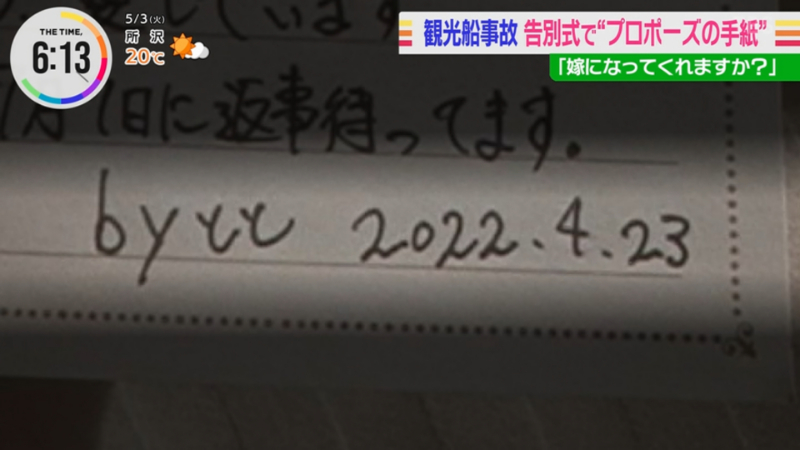 THE TIME,
6:13
5/3(火)
所沢
20℃
観光船事故 告別式で“プロポーズの手紙”
「嫁になってくれますか?」
しています
月1日に返事待ってます。
byとと 2022.4.23